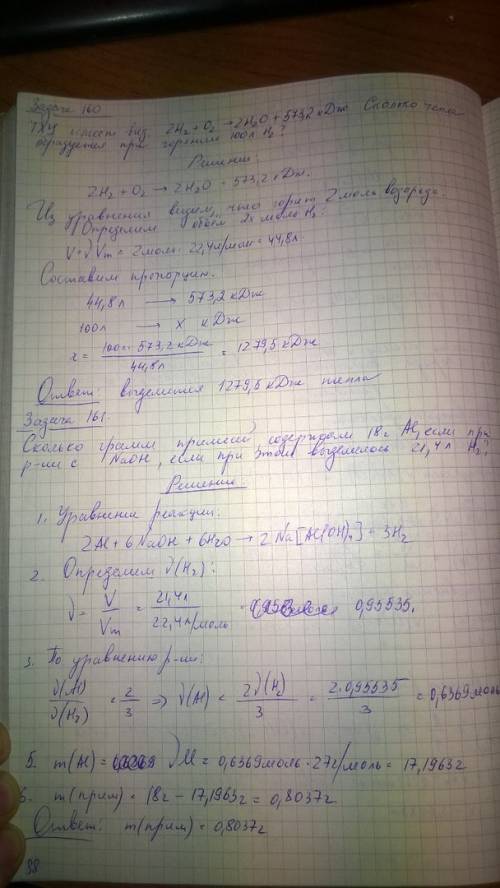 Задача 160
ТХУ имеет вид: 2H₂ + O₂ → 2H₂O + 573,2 кДж. Сколько тепла
образуется при горении 100л H₂?
Решение:
2H₂ + O₂ → 2H₂O + 573,2 кДж.
Из уравнения видем, что горит 2 моль водорода.
Определим объём 2х моль H₂:
V = ν Vm = 2 моль · 22,4 л/моль = 44,8 л.
Составим пропорцию.
44,8 л → 573,2 кДж
100 л → x кДж
x = 100 · 573,2 кДж / 44,8 л = 1279,5 кДж
Ответ: выделится 1279,5 кДж тепла
Задача 161.
Сколько грамм примесей содержат 18 г Al, если при
р-ии с NaOH, если при этом выделилось 21,4 л H₂?
Решение:
1. Уравнение реакции:
2Al + 6NaOH + 6H₂O → 2Na[Al(OH)₄] + 3H₂
2. Определим ν(H₂):
ν = V / Vm = 21,4 л / 22,4 л/моль = 0,95535.
3. По уравнению р-ии:
ν(Al) / ν(H₂) = 2 / 3 ⇒ ν(Al) = 2ν(H₂) / 3 = 2 · 0,95535 / 3 = 0,6369 моль
5. m(Al) = νM = 0,6369 моль · 27 г/моль = 17,1963 г
6. m(прим) = 18 г − 17,1963 г = 0,8037 г
Ответ: m(прим) = 0,8037 г
38